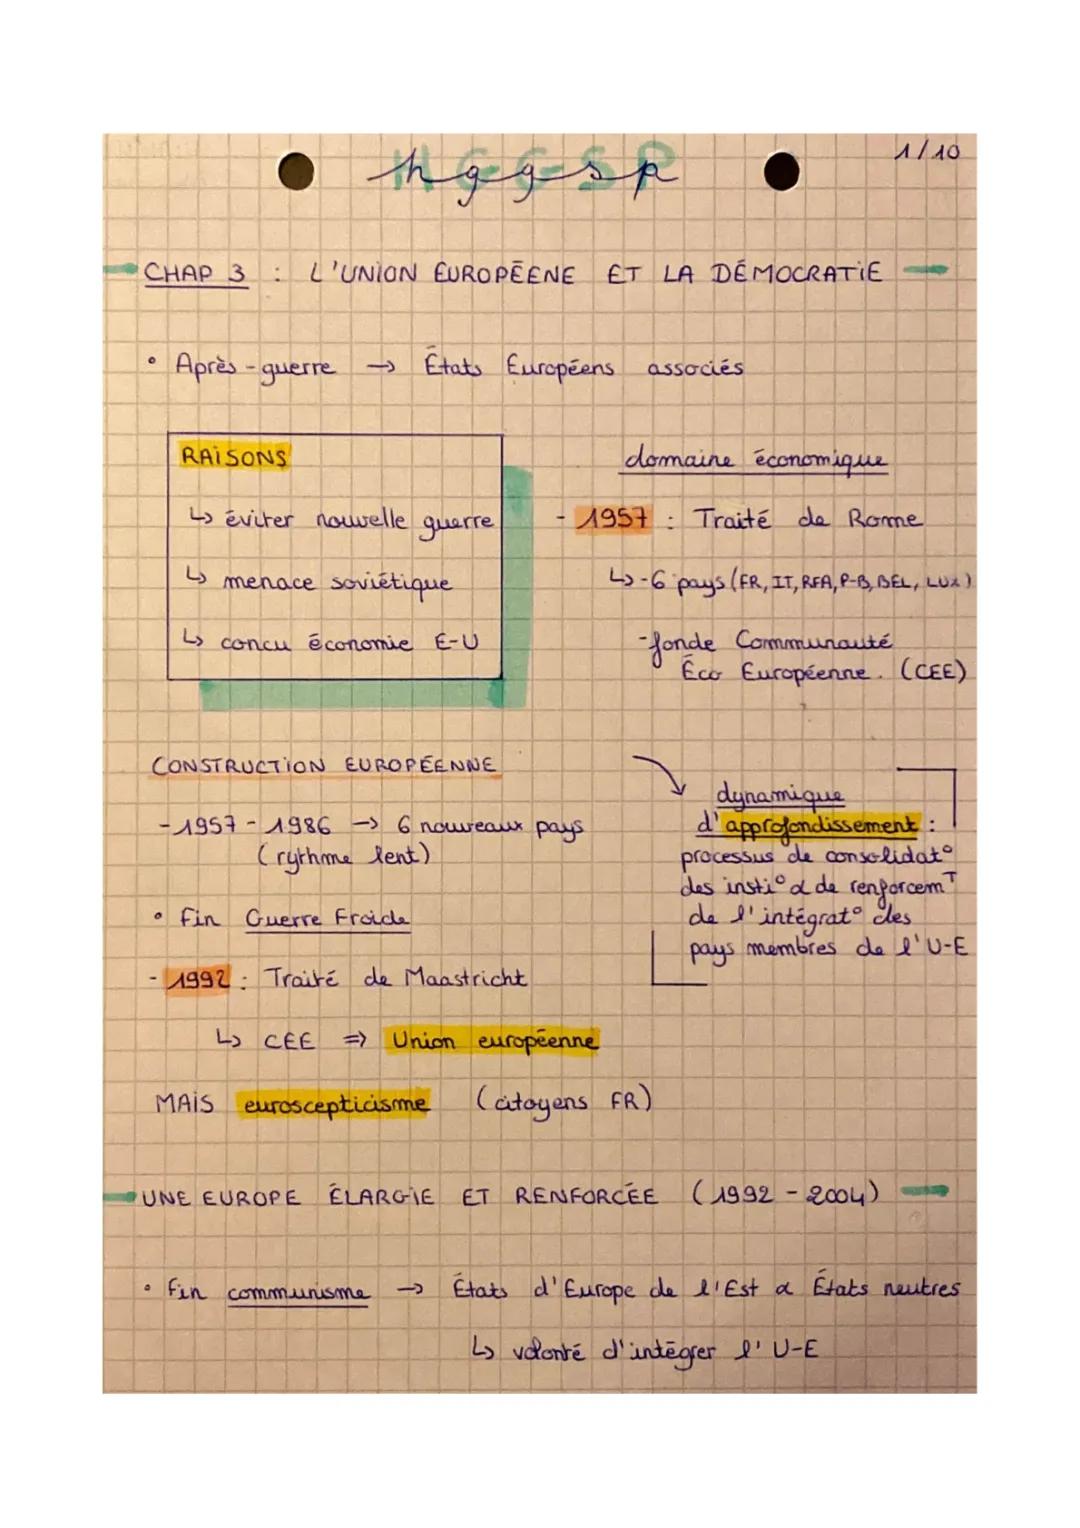 HGGSP
hggsp
1/10
CHAP 3 : L'UNION EUROPÉENE ET LA DÉMOCRATIE
• Après-guerre → États Européens associés
RAISONS
↳ éviter nouvelle guerre
↳ menace soviétique
↳ concu économie E-U
domaine économique
- 1957 : Traité de Rome
↳ - 6 pays (FR, IT, RFA, P-B, BEL, LUX)
- fonde Communauté
Éco Européenne. (CEE)
CONSTRUCTION EUROPÉENNE
- 1957 - 1986 → 6 nouveaux pays
(rythme lent)
• Fin Guerre Froide
- 1992 : Traité de Maastricht
↳ CEE ⇒ Union européenne
MAIS euroscepticisme (citoyens FR)
dynamique
d'approfondissement :
processus de consolidat°
des insti° & de renforcemT
de l'intégrat° des
pays membres de l'U-E
UNE EUROPE ÉLARGIE ET RENFORCÉE (1992 - 2004)
• Fin communisme → États d'Europe de l'Est & États neutres
↳ volonté d'intégrer l'U-E